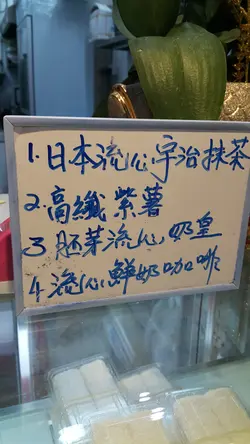 1.日本流心宇治抹茶
2.高纖紫薯
3胚芽流心奶皇
4.流心鮮奶咖啡